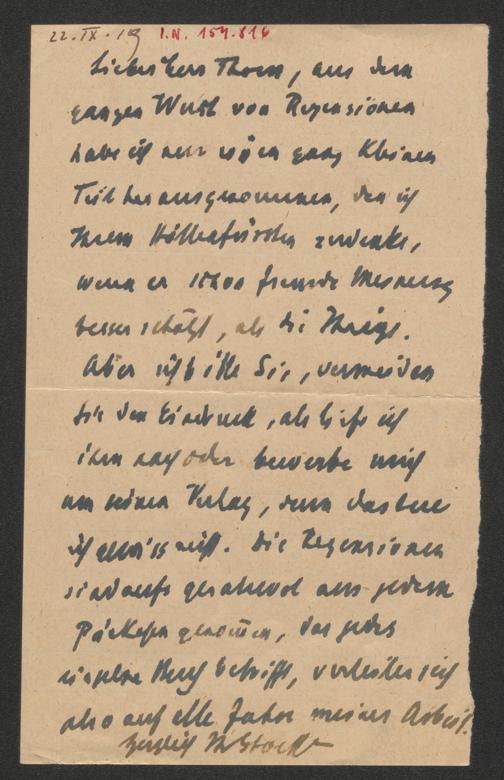 22.IX. I.N. 154.816
Lieber Herr Thom, aus dem
ganzen Wust von Rezensionen
habe ich nur einen ganz kleinen
Teil herausgenommen, den ich
Ihrem zudenke,
wenn er schon fremde Meinung
besser schätzt, als die Ihrige.
Aber ich bitte Sie, vermeiden
Sie den Eindruck, als liefe ich
ihm nach oder bewerbe mich
um einen Verlag, denn das tue
ich gewiss nicht. Die Rezensionen
sind aufs geratewol aus jedem
Päckchen genom̄en, das jedes
einzelne Buch betrifft, verteilen sich
also auf elle Jahre meiner Arbeit.
Herzlich